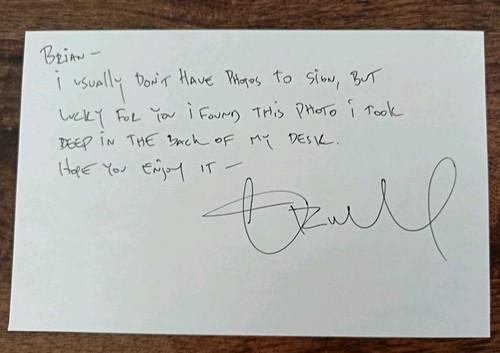 BRIAN —
i USUALLY DON'T HAVE PHOTOS TO SIGN, BUT
LUCKY FOR YOU i FOUND THIS PHOTO i TOOK
DEEP IN THE BACK OF MY DESK.
HOPE YOU ENJOY IT —